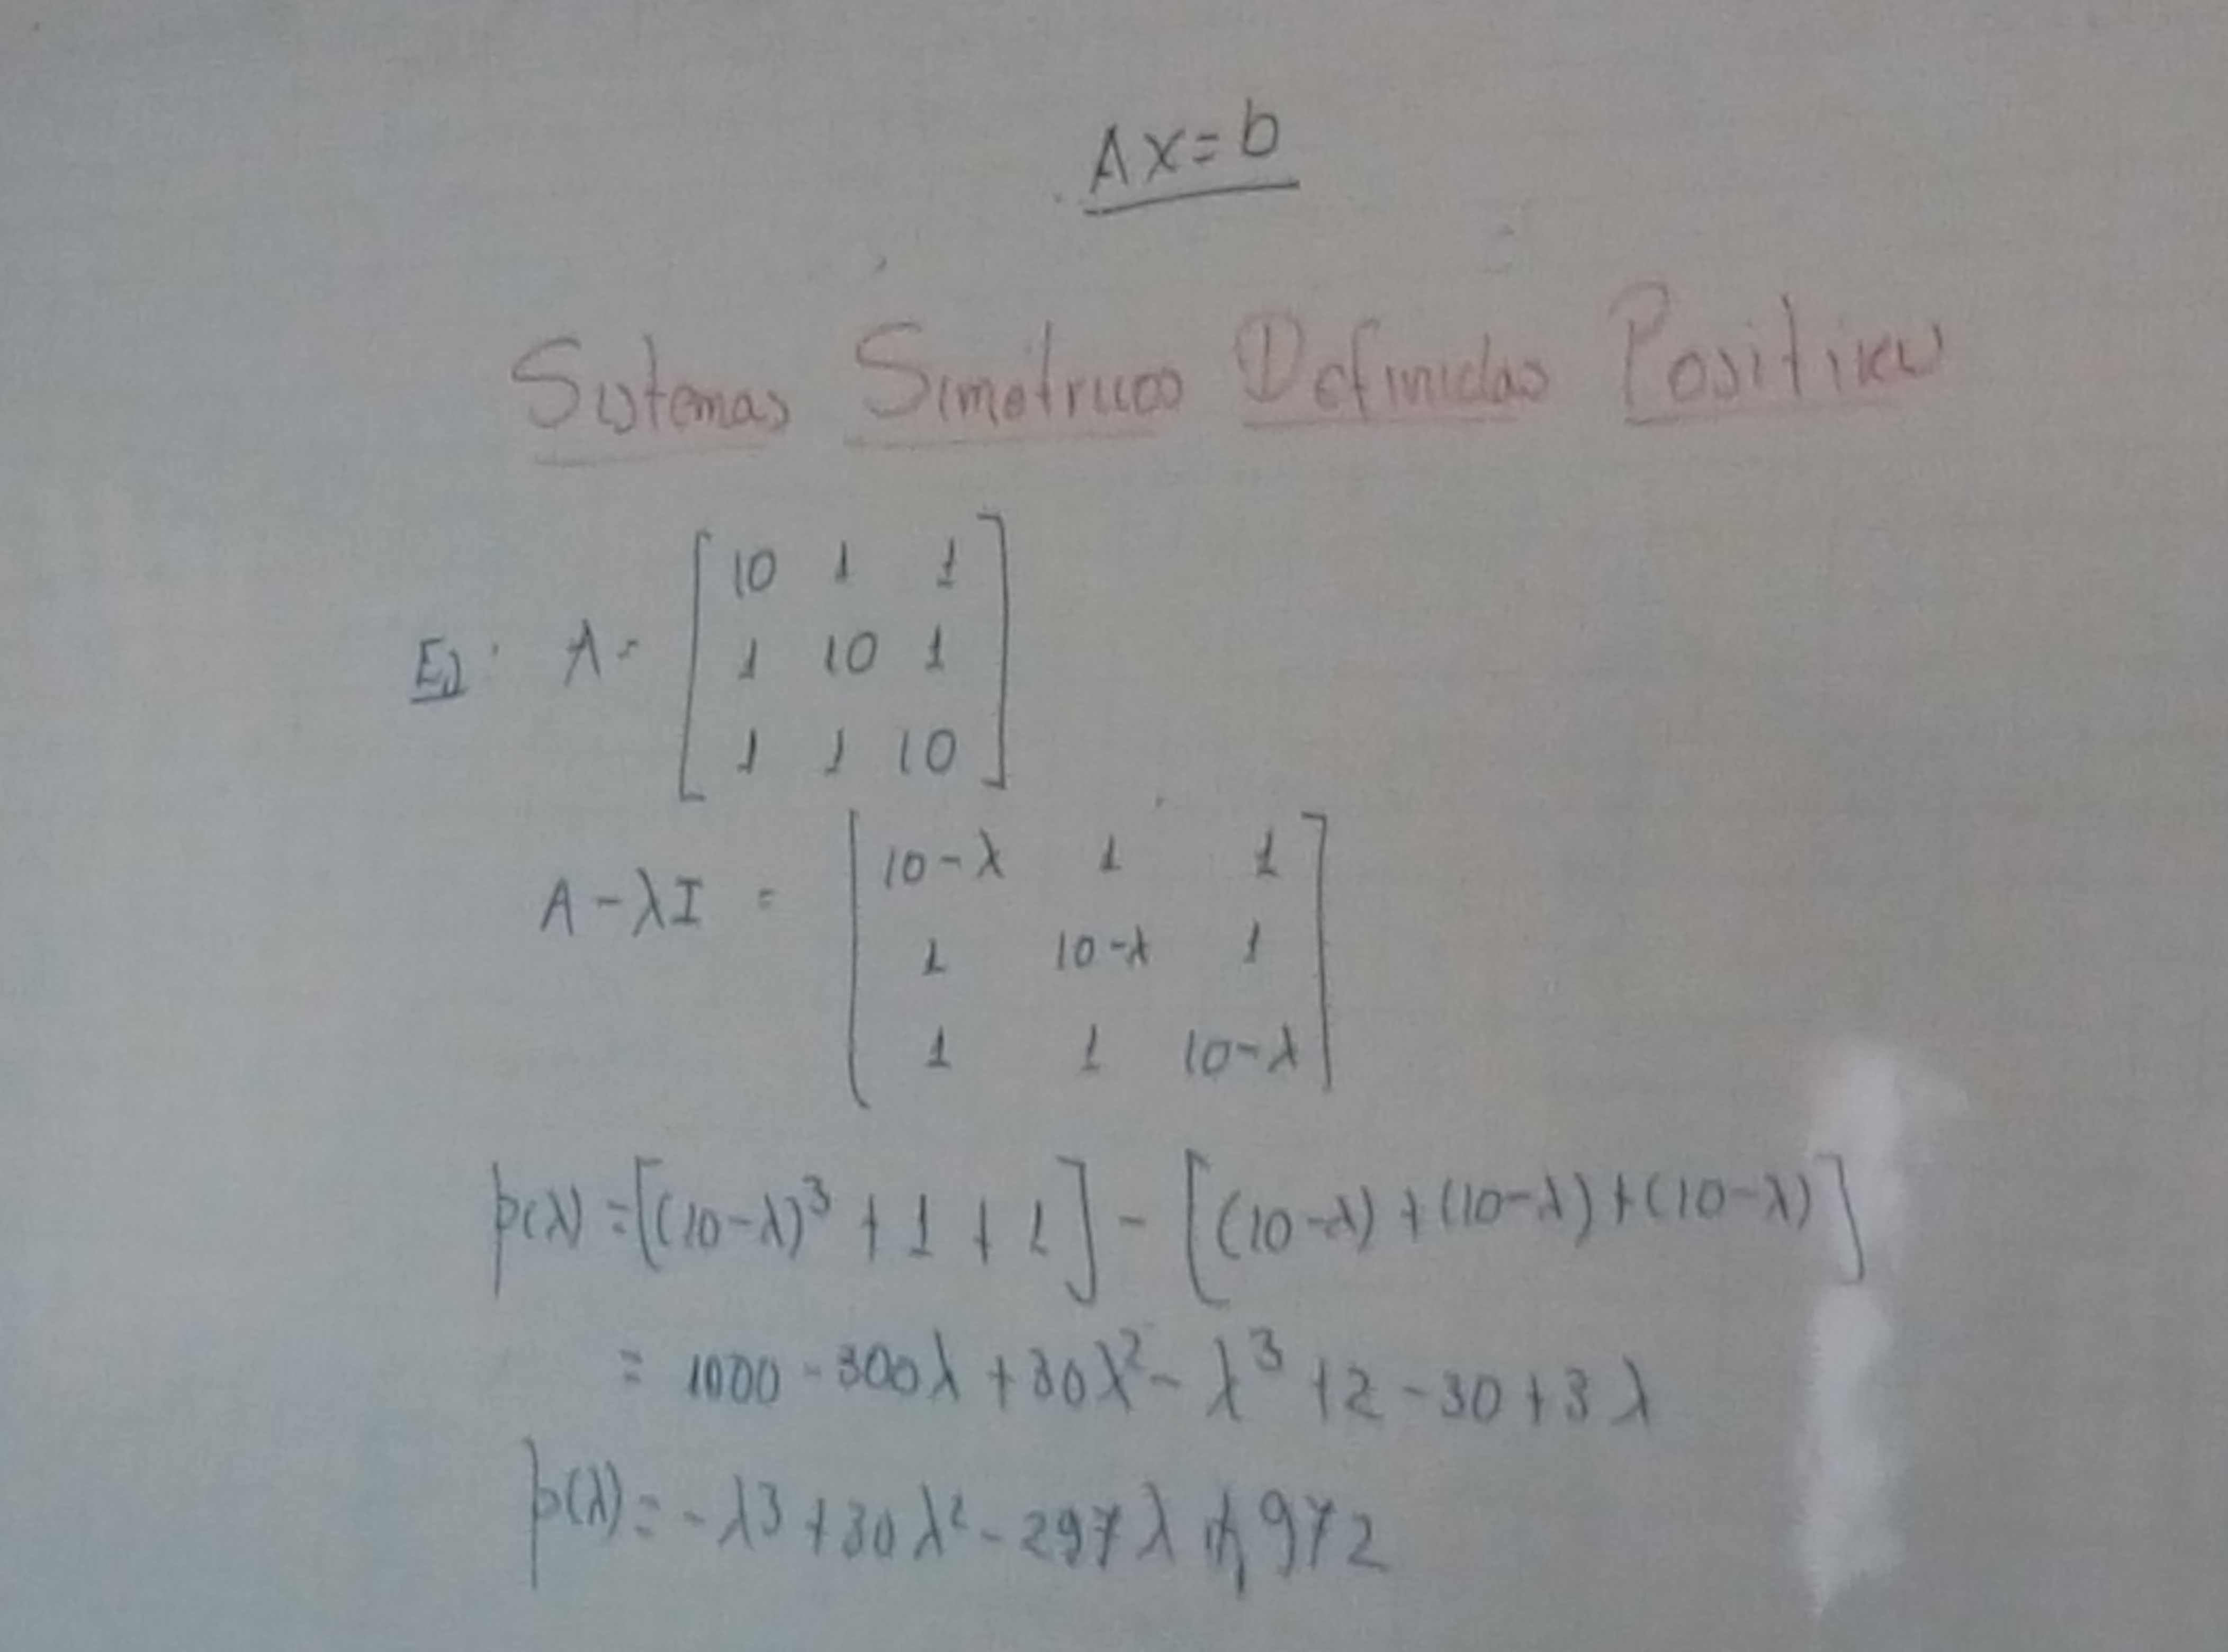 Ax=b
Sistemas Simetricos Definidas Positivas
Ej: A= [10 1 1
1 10 1
1 1 10]
A-λI = [10-λ 1 1
1 10-λ 1
1 1 10-λ]
p(λ)=[(10-λ)³+1+1]-[(10-λ)+(10-λ)+(10-λ)]
= 1000-300λ+30λ²-λ³+2-30+3λ
p(λ)=-λ3+30λ²-297λ+972